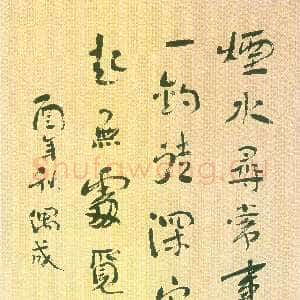 煙水尋常事
一釣徒深宵
起無處覓
酉年秋偶成